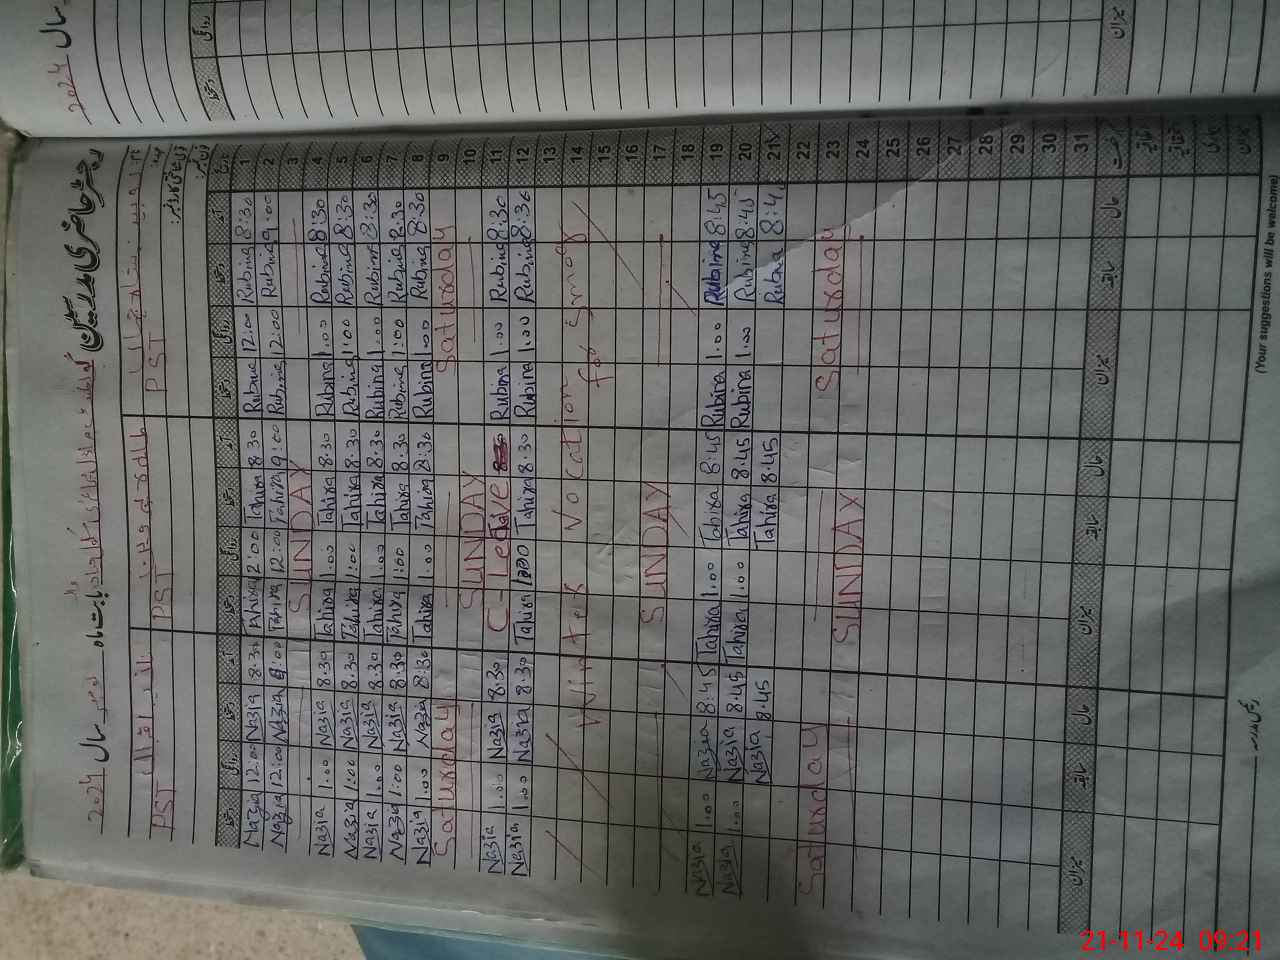 2024 سال
رجسٹر حاضری مدرسین
بابت ماہ نومبر سال 2024
PST PST PST
1 Rubina 8:30 Rubina 12:00 Tahira 8.30 Tahira 2:00 Nazia 8.30 Nazia 12:00
2 Rubina 9:00 Rubina 12:00 Tahira 9:00 Tahira 12:00 Nazia 9:00 Nazia 12:00
3 SUNDAY
4 Rubina 8:30 Rubina 1.00 Tahira 8.30 Tahira 1:00 Nazia 8.30 Nazia 1:00
5 Rubina 8:30 Rubina 1:00 Tahira 8.30 Tahira 1:00 Nazia 8.30 Nazia 1:00
6 Rubina 8:30 Rubina 1.00 Tahira 8.30 Tahira 1.00 Nazia 8.30 Nazia 1.00
7 Rubina 8.30 Rubina 1:00 Tahira 8.30 Tahira 1:00 Nazia 8.30 Nazia 1:00
8 Rubina 8:30 Rubina 1.00 Tahira 8:30 Tahira 1.00 Nazia 8:30 Nazia 1.00
9 Saturday Saturday
10 SUNDAY
11 Rubina 8:30 Rubina 1.00 C-Leave Nazia 8.30 Nazia 1.00
12 Rubina 8:30 Rubina 1.00 Tahira 8.30 Tahira 1:00 Nazia 8.30 Nazia 1.00
13
14 Winter Vocation For Smog
15
16
17 SUNDAY
18
19 Rubina 8:45 Rubina 1.00 Tahira 8:45 Tahira 1.00 Nazia 8.45 Nazia 1.00
20 Rubina 8:45 Rubina 1.00 Tahira 8.45 Tahira 1.00 Nazia 8.45 Nazia 1.00
21 Rubina 8:4 Tahira 8.45 Nazia 8.45
22
23 Saturday Saturday
24 SUNDAY
25
26
27
28
29
30
31
میزان سابقہ حال میزان سابقہ حال میزان سابقہ حال
(Your suggestions will be welcome)
21-11-24 09:21